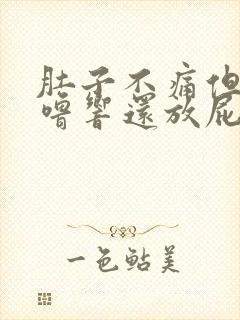 肚子不痛但
噜響還放屁
一色鲇美